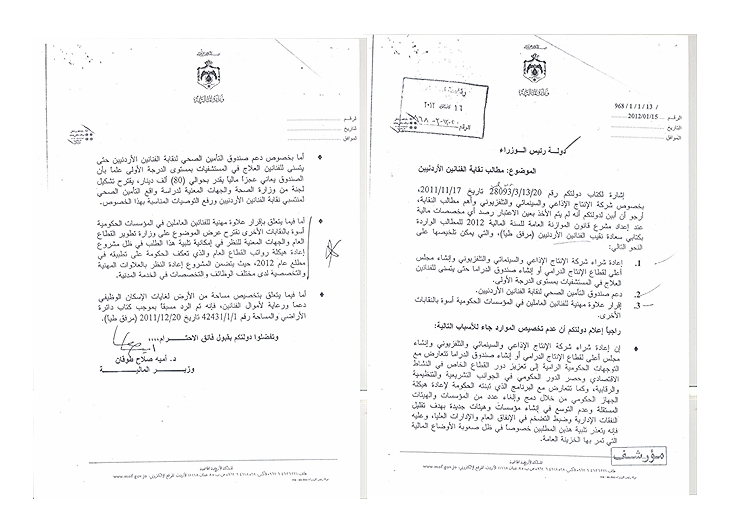 968 / 1 / 1 / 13 /
الرقـم
2012/01/15
التاريخ
الموافق
دولـة رئيس الـوزراء
الموضوع: مطالب نقابة الفنانين الأردنيين
إشارة لكتاب دولتكم رقم 28093/3/13/20 تاريخ 2011/11/17،
بخصوص شركة الإنتاج الإذاعي والسينمائي والتلفزيوني وأهم مطالب النقابة،
أرجو أن أبين لدولتكم أنه لم يتم الأخذ بعين الاعتبار رصد أي مخصصات مالية
عند إعداد مشروع قانون الموازنة العامة للسنة المالية 2012 للمطالب الواردة
بكتابي سعادة نقيب الفنانين الأردنيين (مرفق طياً)، والتي يمكن تلخيصها على
النحو التالي:
1. إعادة شراء شركة الإنتاج الإذاعي والسينمائي والتلفزيوني وإنشاء مجلس
أعلى لقطاع الإنتاج الدرامي أو إنشاء صندوق الدراما حتى يتسنى للفنانين
العلاج في المستشفيات بمستوى الدرجة الأولى.
2. دعم صندوق التأمين الصحي لنقابة الفنانين الأردنيين.
3. إقرار علاوة مهنية للفنانين العاملين في المؤسسات الحكومية أسوة بالنقابات
الأخرى.
راجياً إعلام دولتكم أن عدم تخصيص الموارد جاء للأسباب التالية:
♦ إن إعادة شراء شركة الإنتاج الإذاعي والسينمائي والتلفزيوني وإنشاء
مجلس أعلى لقطاع الإنتاج الدرامي أو إنشاء صندوق الدراما تتعارض مع
التوجهات الحكومية الرامية إلى تعزيز دور القطاع الخاص في النشاط
الاقتصادي وحصر الدور الحكومي في الجوانب التشريعية والتنظيمية
والرقابية، وكما تتعارض مع البرنامج الذي تبنته الحكومة لإعادة هيكلة
الجهاز الحكومي من خلال دمج وإلغاء عدد من المؤسسات والهيئات
المستقلة وعدم التوسع في إنشاء مؤسسات وهيئات جديدة بهدف تقليل
النفقات الإدارية وضبط التضخم في الإنفاق العام والإدارات العليا، وعليه
فإنه يتعذر تلبية هذين المطلبين خصوصاً في ظل صعوبة الأوضاع المالية
التي تمر بها الخزينة العامة.
مؤرشف
الرقـم
التاريخ
الموافق
♦ أما بخصوص دعم صندوق التأمين الصحي لنقابة الفنانين الأردنيين حتى
يتسنى للفنانين العلاج في المستشفيات بمستوى الدرجة الأولى علماً بأن
الصندوق يعاني عجزاً مالياً يقدر بحوالي (80) ألف دينار، يقترح تشكيل
لجنة من وزارة الصحة والجهات المعنية لدراسة واقع التأمين الصحي
لمنتسبي نقابة الفنانين الأردنيين ورفع التوصيات المناسبة بهذا الخصوص.
♦ أما فيما يتعلق بإقرار علاوة مهنية للفنانين العاملين في المؤسسات الحكومية
أسوة بالنقابات الأخرى نقترح عرض الموضوع على وزارة تطوير القطاع
العام والجهات المعنية للنظر في إمكانية تلبية هذا الطلب في ظل مشروع
إعادة هيكلة رواتب القطاع العام والذي تعكف الحكومة على تطبيقه في
مطلع عام 2012، حيث يتضمن المشروع إعادة النظر بالعلاوات المهنية
والتخصصية لدى مختلف الوظائف والتخصصات في الخدمة المدنية.
♦ أما فيما يتعلق بتخصيص مساحة من الأرض لغايات الإسكان الوظيفي
دعماً ورعاية لأموال الفنانين، فإنه تم الرد مسبقاً بموجب كتاب دائرة
الأراضي والمساحة رقم 42431/1/1 تاريخ 2011/12/20 (مرفق طياً).
وتفضلوا دولتكم بقبول فائق الاحتـــرام،،،،
د. أمية صلاح طوقان
وزيـــر المـاليــــة